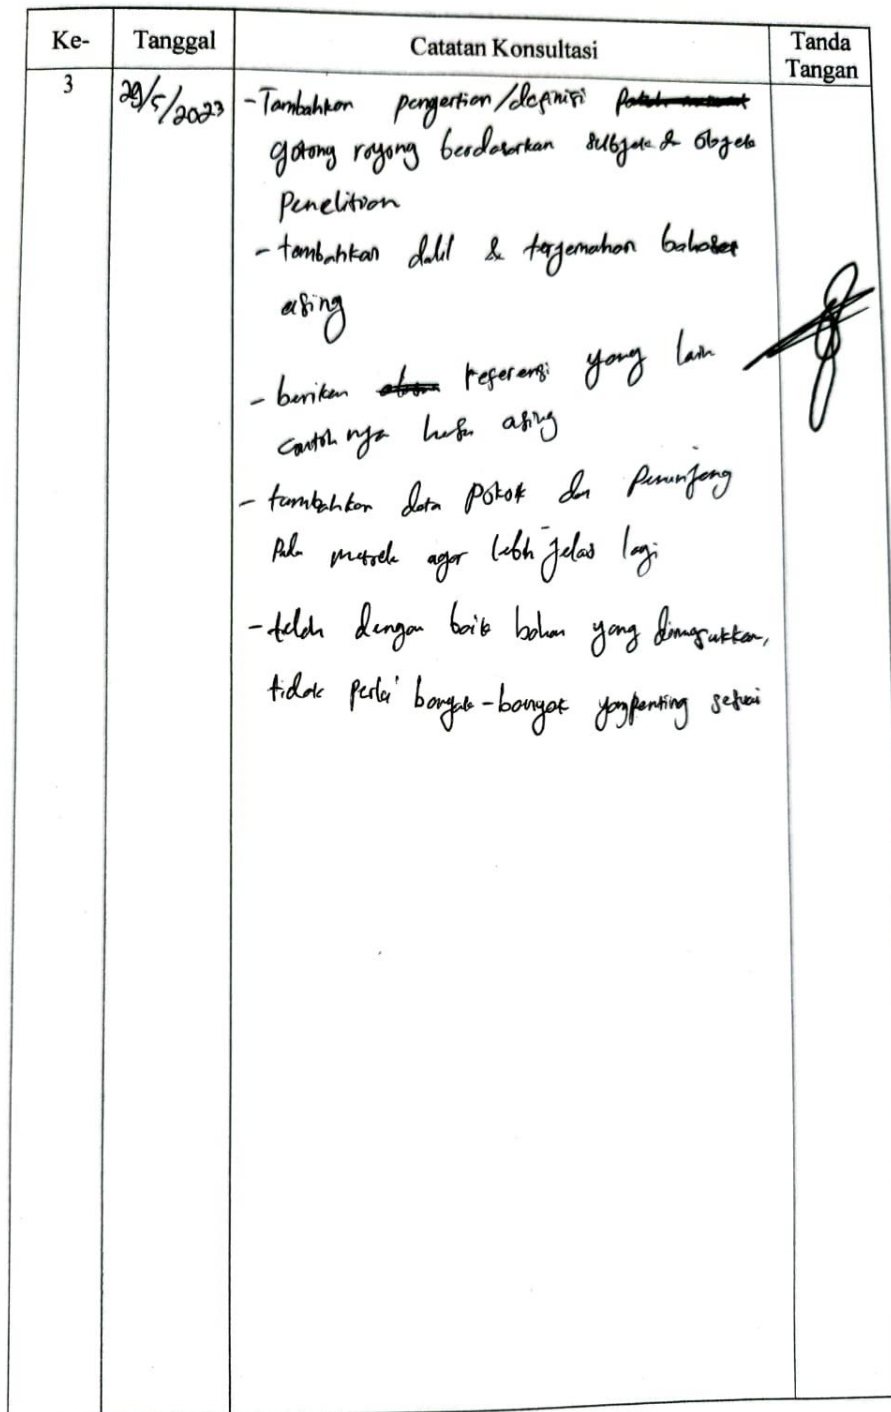 Ke- Tanggal Catatan Konsultasi Tanda Tangan
3 29/5/2023 - Tambahkan pengertian/definisi
gotong royong berdasarkan subjek & objek
Penelitian
- tambahkan dalil & terjemahan bahasa
asing
- berikan referensi yang lain
contohnya asing
- tambahkan data pokok dan Penunjang
Pada metode agar lebih jelas lagi
- telah dengan baik bahan yang dimasukkan,
tidak perlu banyak-banyak yang penting sesuai